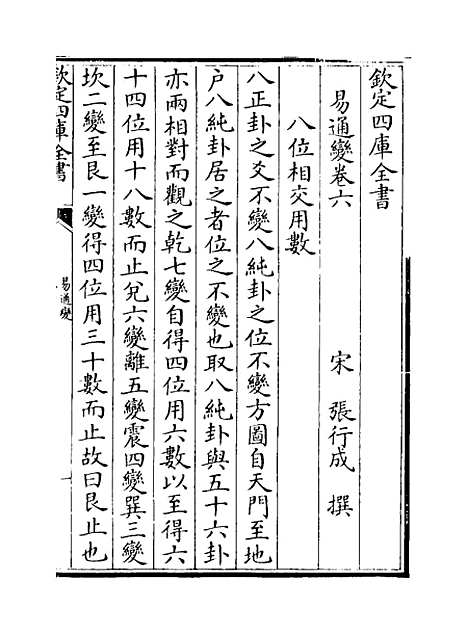 欽定四庫全書
易通變卷六
宋　張行成　撰
八位相交用數
八正卦之爻不變八純卦之位不變方圖自天門至地
户八純卦居之者位之不變也取八純卦與五十六卦
亦兩相對而觀之乾七變自得四位用六數以至得六
十四位用十八數而止兌六變離五變震四變巽三變
坎二變至艮一變得四位用三十數而止故曰艮止也
欽定四庫全書
易通變
一